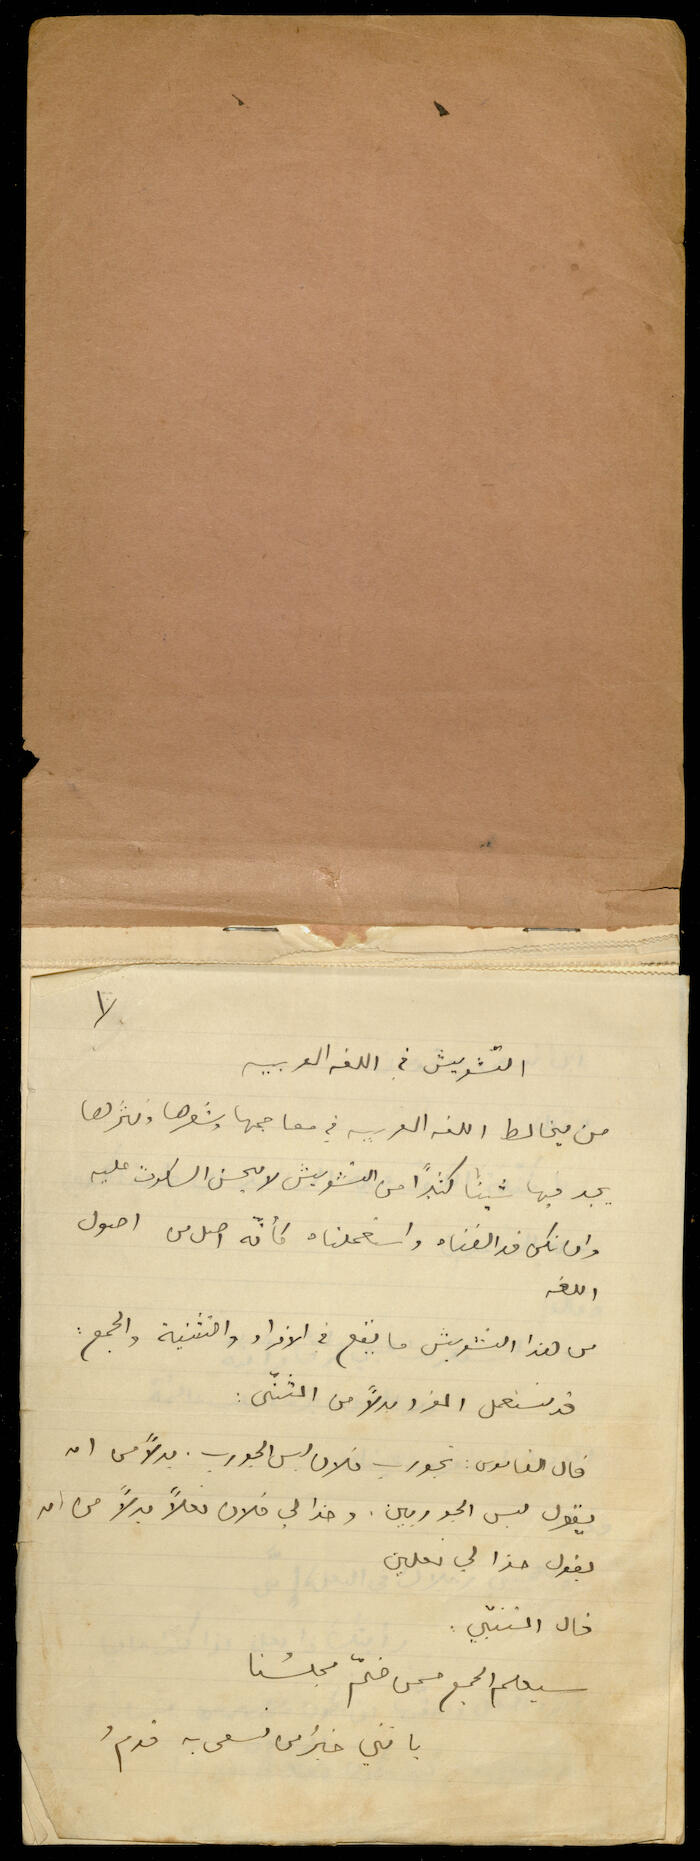 لا
التشويش في اللغه العربيه
من يخالط اللغه العربيه في معاجمها وشعرها ونثرها
يجد فيها شيئا كثيرًا من التشويش لا يحسن السكوت عليه
وان نكن قد الفناه واستعملناه كأنّه اصل من اصول
اللغه
من هذا التشويش ما يقع في الافراد والتثنية والجمع :
قد يستعمل المفرد بدلاً من المثنّى :
قال القاموس : تجورب فلان لبس الجورب . بدلاً من ان
يقول لبس الجوربين . وحذا لي فلان نعلاً بدلاً من ان
يقول حذا لي نعلين
قال المتنبّي :
سيعلم الجمع ممن ضمّ مجلسُنا
بانني خيرُ من تسعى به قدمُ